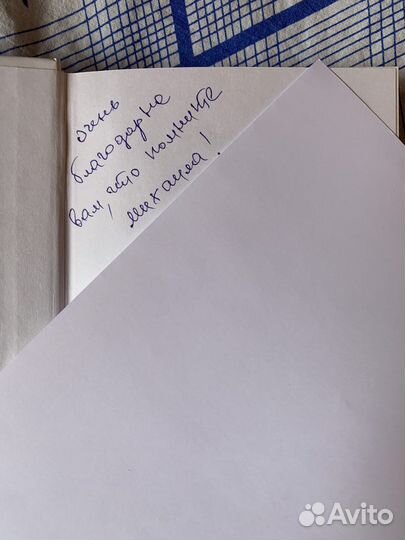 очень
благодарна
вам, что помните
михаила!
Avito